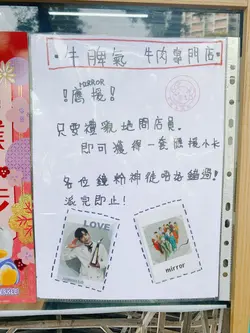 牛脾氣 牛肉專門店
MIRROR
!應援!
只要禮貌地問店員,
即可獲得一套應援小卡
各位鏡粉神徒唔好錯過!
派完即止!
LOVE
mirror